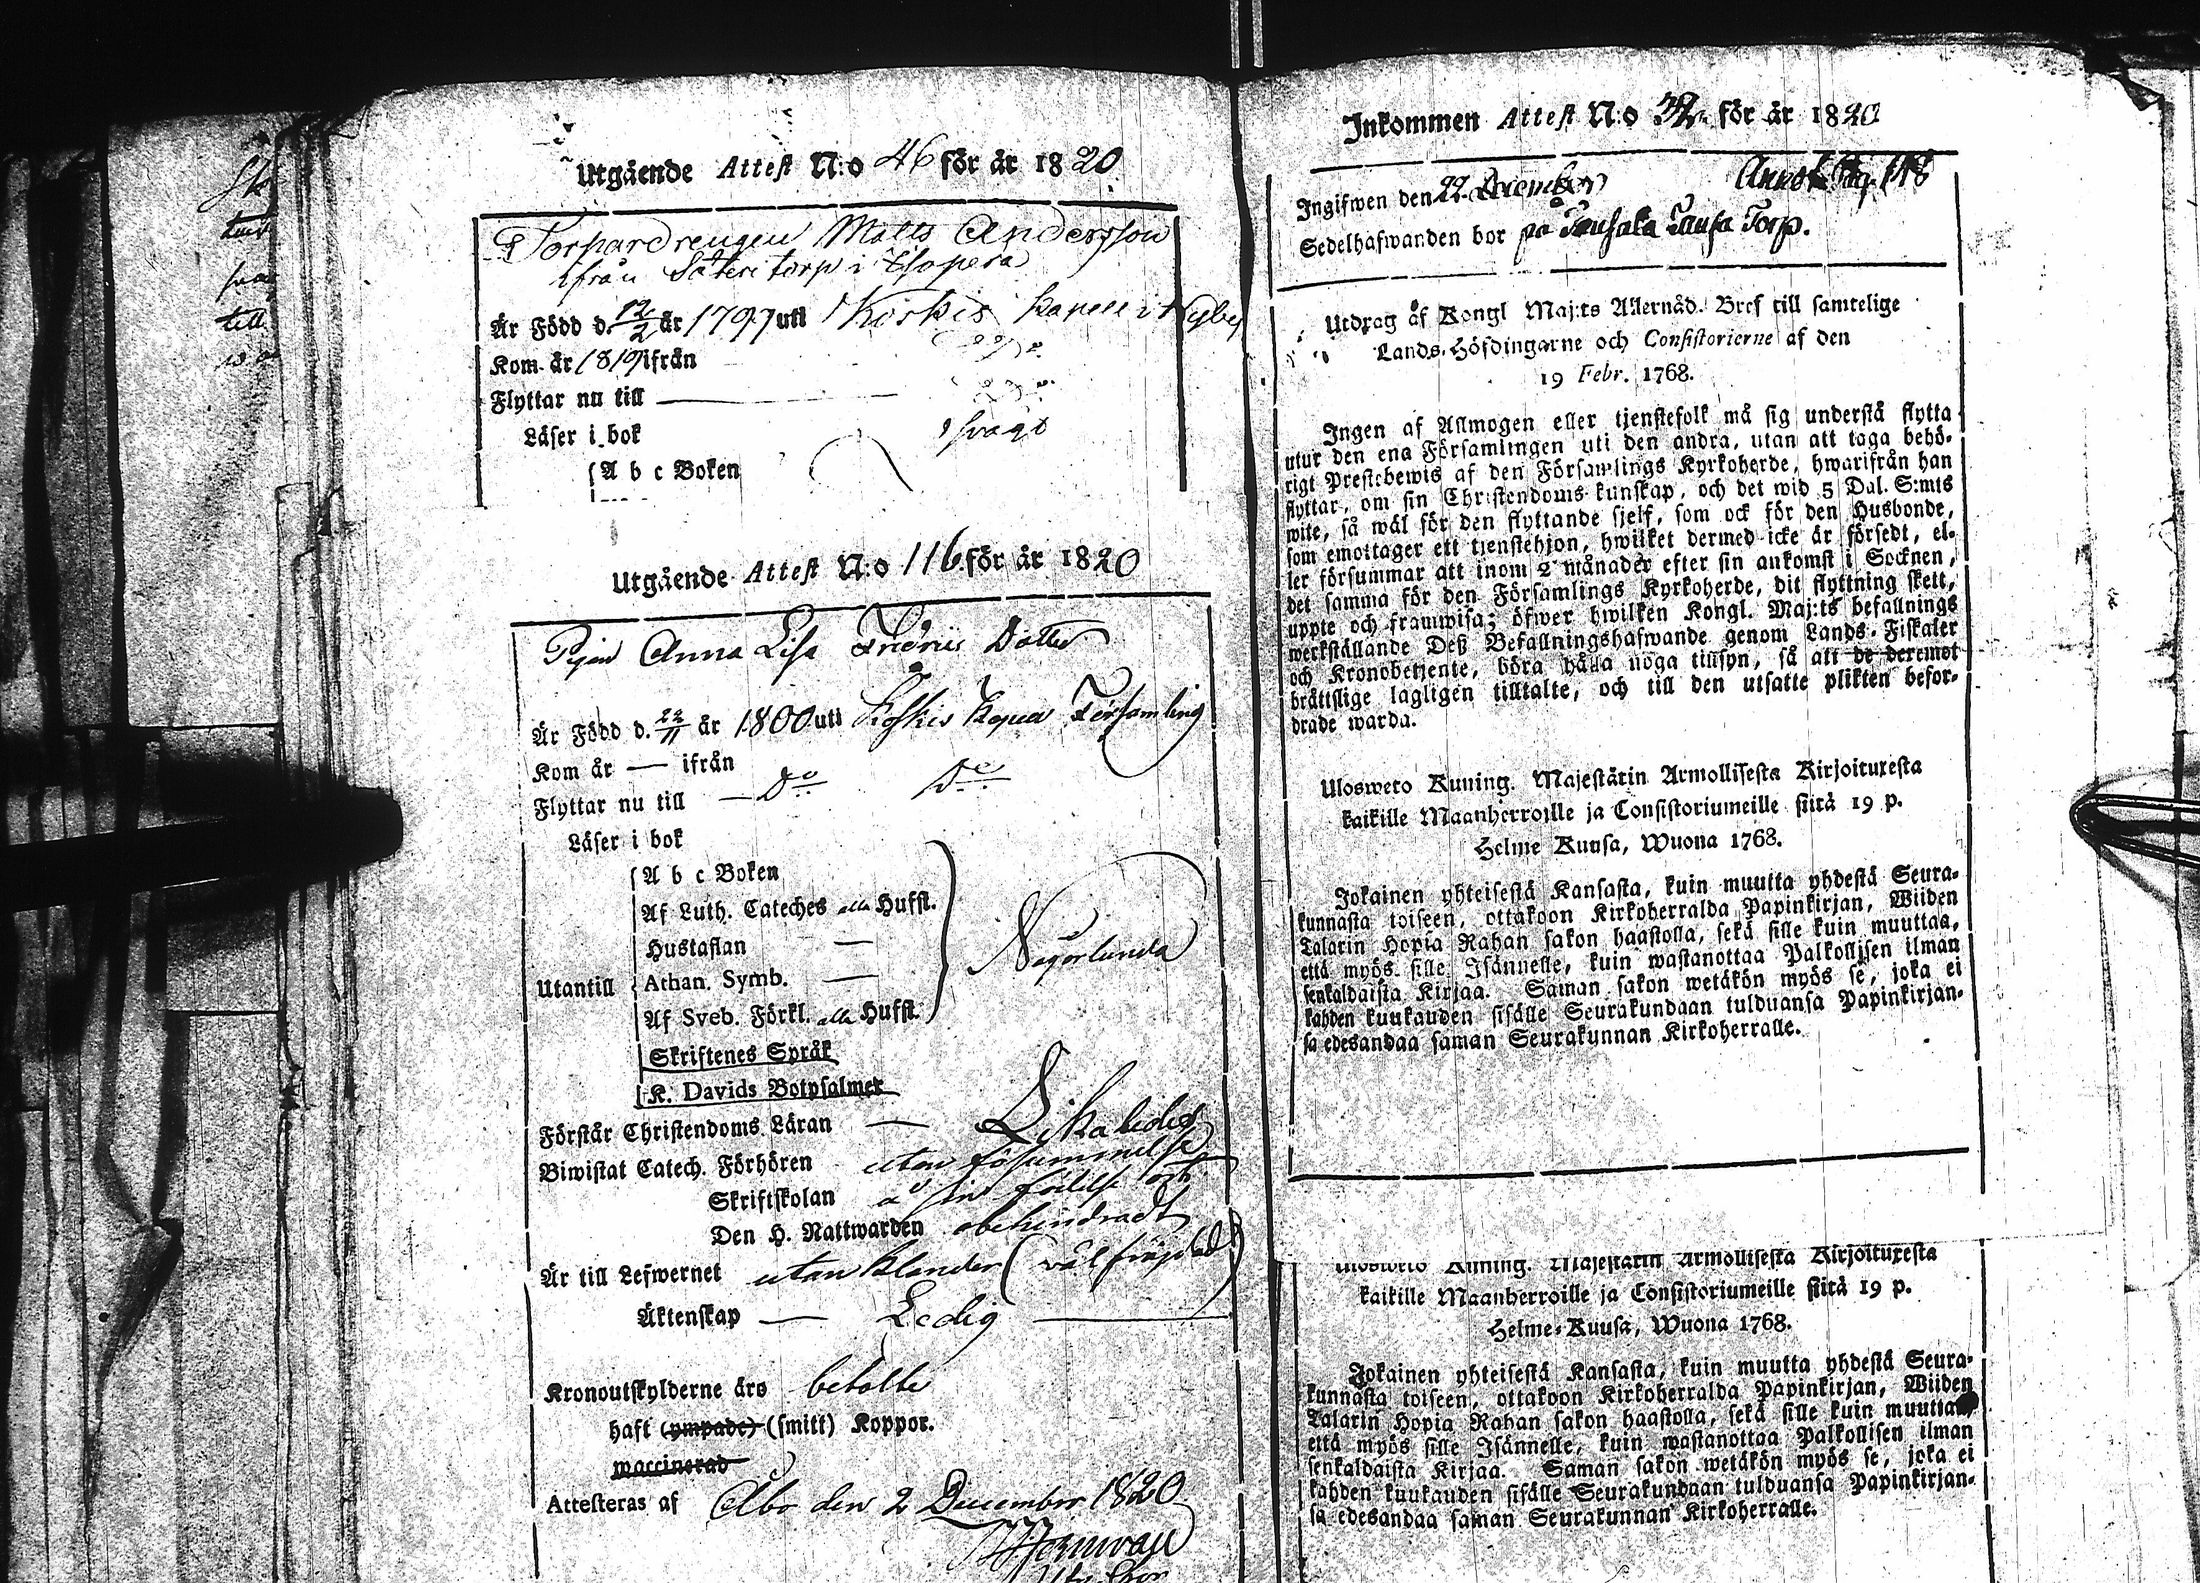 Utgående Attest N:o 46 för år 1820
Torpardrengen Matts Andersson
ifrån Säteri torp i
Är Född d. 12/2 år 1797 uti Koskis Kapell i
Kom år 1819 ifrån
Flyttar nu till
Läser i bok svagt
A b c Boken
Utgående Attest N:o 116 för år 1820
Pigan Anna Lisa Dotter
Är Född d. 22/11 år 1800 uti Koskis Församling
Kom år — ifrån
Flyttar nu till — Do Do
Läser i bok
A b c Boken
Af Luth. Cateches alla Hufst.
Hustaflan —
Utantill Athan. Symb. —
Af Sveb. Förkl. alla Hufst.
Någorlunda
Skriftenes Språk
K. Davids Botpsalmer
Förstår Christendoms Läran — Likaledes
Biwistat Catech. Förhören utan försummelse
Skriftskolan
Den H. Nattwarden obehindradt
Är till Lefwernet utan klander (väl frejdad)
Äktenskap — Ledig
Kronoutskylderne äro betalte
haft (ympade) (smitt) Koppor.
waccinerad
Attesteras af Åbo den 2 December 1820
Inkommen Attest N:o 32 för år 1820
Ingifwen den 22 December
Sedelhafwanden bor på Torp.
Utdrag af Kongl Maj:ts Allernåd. Bref till samtelige
Lands-Höfdingarne och Consistorierne af den
19 Febr. 1768.
Ingen af Allmogen eller tjenstefolk må sig understå flytta
utur den ena Församlingen uti den andra, utan att taga behö-
rigt Prestebewis af den Församlings Kyrkoherde, hwarifrån han
flyttar, om sin Christendoms kunskap, och det wid 5 Dal. S:mts
wite, så wäl för den flyttande sjelf, som ock för den Husbonde,
som emottager ett tjenstehjon, hwilket dermed icke är försedt, el-
ler försummar att inom 2 månader efter sin ankomst i Socknen,
det samma för den Församlings Kyrkoherde, dit flyttning skett,
uppte och framwisa; öfwer hwilken Kongl. Maj:ts befallnings
werkställande Deß Befallningshafwande genom Lands-Fiskaler
och Kronobetjente, böra hålla noga tillsyn, så att de deremot
bråttslige lagligen tilltalte, och till den utsatte plikten befor-
drade warda.
Ulosweto Kuning. Majestätin Armollisesta Kirjoituxesta
kaikille Maanherroille ja Consistoriumeille siitä 19 p.
Helme Kuusa, Wuona 1768.
Jokainen yhteisestä Kansasta, kuin muutta yhdestä Seura-
kunnasta toiseen, ottakoon Kirkoherralda Papinkirjan, Wiiden
Talarin Hopia Rahan sakon haastolla, sekä sille kuin muuttaa,
että myös sille Isännelle, kuin wastanottaa Palkollisen ilman
senkaldaista Kirjaa. Saman sakon wetäkön myös se, joka ei
kahden kuukauden sisälle Seurakundaan tulduansa Papinkirjan-
sa edesandaa saman Seurakunnan Kirkoherralle.
Ulosweto Kuning. Majestätin Armollisesta Kirjoituxesta
kaikille Maanherroille ja Consistoriumeille siitä 19 p.
Helme-Kuusa, Wuona 1768.
Jokainen yhteisestä Kansasta, kuin muutta yhdestä Seura-
kunnasta toiseen, ottakoon Kirkoherralda Papinkirjan, Wiiden
Talarin Hopia Rahan sakon haastolla, sekä sille kuin muuttaa,
että myös sille Isännelle, kuin wastanottaa Palkollisen ilman
senkaldaista Kirjaa. Saman sakon wetäkön myös se, joka ei
kahden kuukauden sisälle Seurakundaan tulduansa Papinkirjan-
sa edesandaa saman Seurakunnan Kirkoherralle.